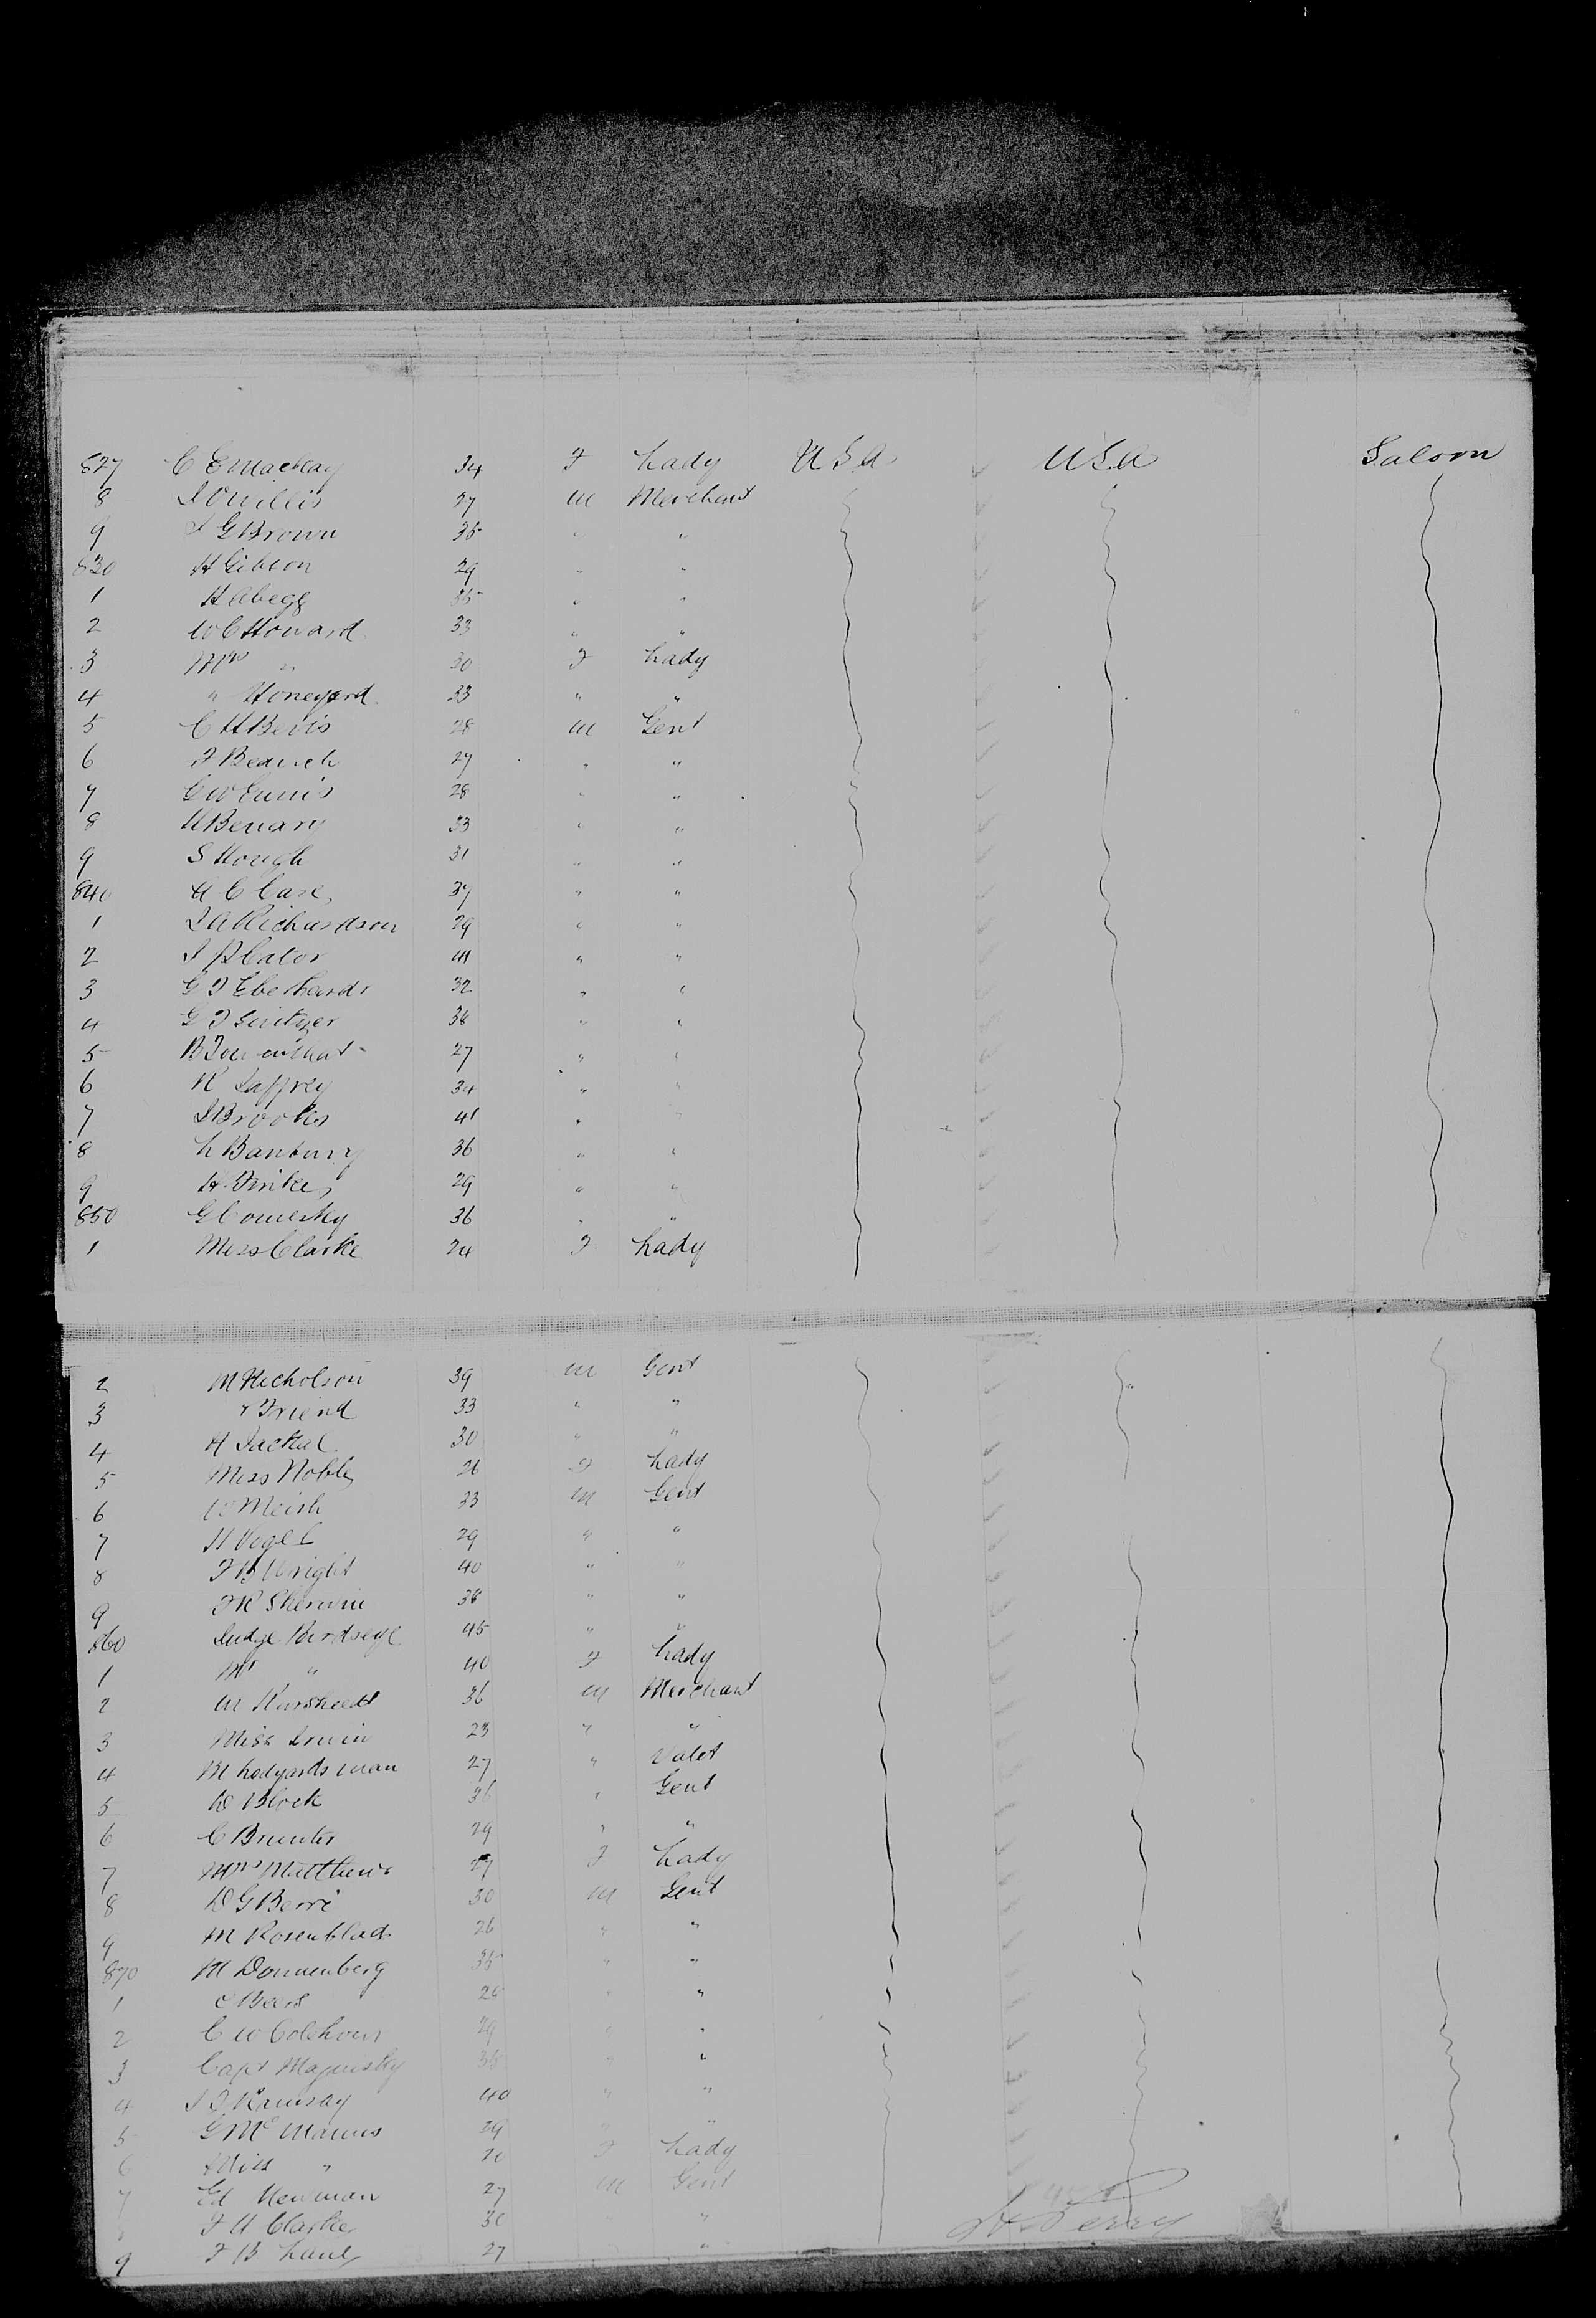 827 C E Mackay 34 F Lady USA USA Saloon
8 J O Willis 27 M Merchant
9 J G Brown 35 " "
830 H Gibson 29 " "
1 H Abegg 35 " "
2 W C Howard 33 " "
3 Mrs " 30 F Lady
4 " Honeyard 33 " "
5 C H Betts 28 M Gent
6 F 27 " "
7 G W Ennis 28 " "
8 H Benary 33 " "
9 S Hough 31 " "
840 H C Case 37 " "
1 J A Richardson 29 " "
2 J P Cator " "
3 G F Eberhardt 32 " "
4 G F 38 " "
5 B 27 " "
6 R Jaffrey 34 " "
7 J Brooks 41 "
8 L Banbury 36 " "
9 H Finke 29 " "
850 G 36 " "
1 Miss Clarke 24 F Lady
2 M Nicholson 39 M Gent
3 " Friend 33 " "
4 H Jackal 30 " "
5 Miss Noble 26 F Lady
6 W Meish 33 M Gent
7 H Vogel 29 " "
8 F B Wright 40 " "
9 F R Sherwin 38 " "
860 Judge Birdseye 45 " "
1 Mrs " 40 F Lady
2 M Karsheedt 36 M Merchant
3 Miss Irwin 23 " "
4 M Ledyards man 27 " Valet
5 D Block 36 " Gent
6 C Brunter 29 " "
7 Mrs Matthews 27 F Lady
8 D G Berri 30 M Gent
9 M Rosenblad 26 " "
870 M Dannenberg 35 " "
1 Beers 28 " "
2 C W Colehour 29 " "
3 Capt 35 " "
4 J F Ramsay 40 " "
5 G Mc Manus 29 "
6 Miss " 20 F Lady
7 Ed Newman 27 M Gent
F H Clarke 30 " "
9 F B Lane 27 "
Perry